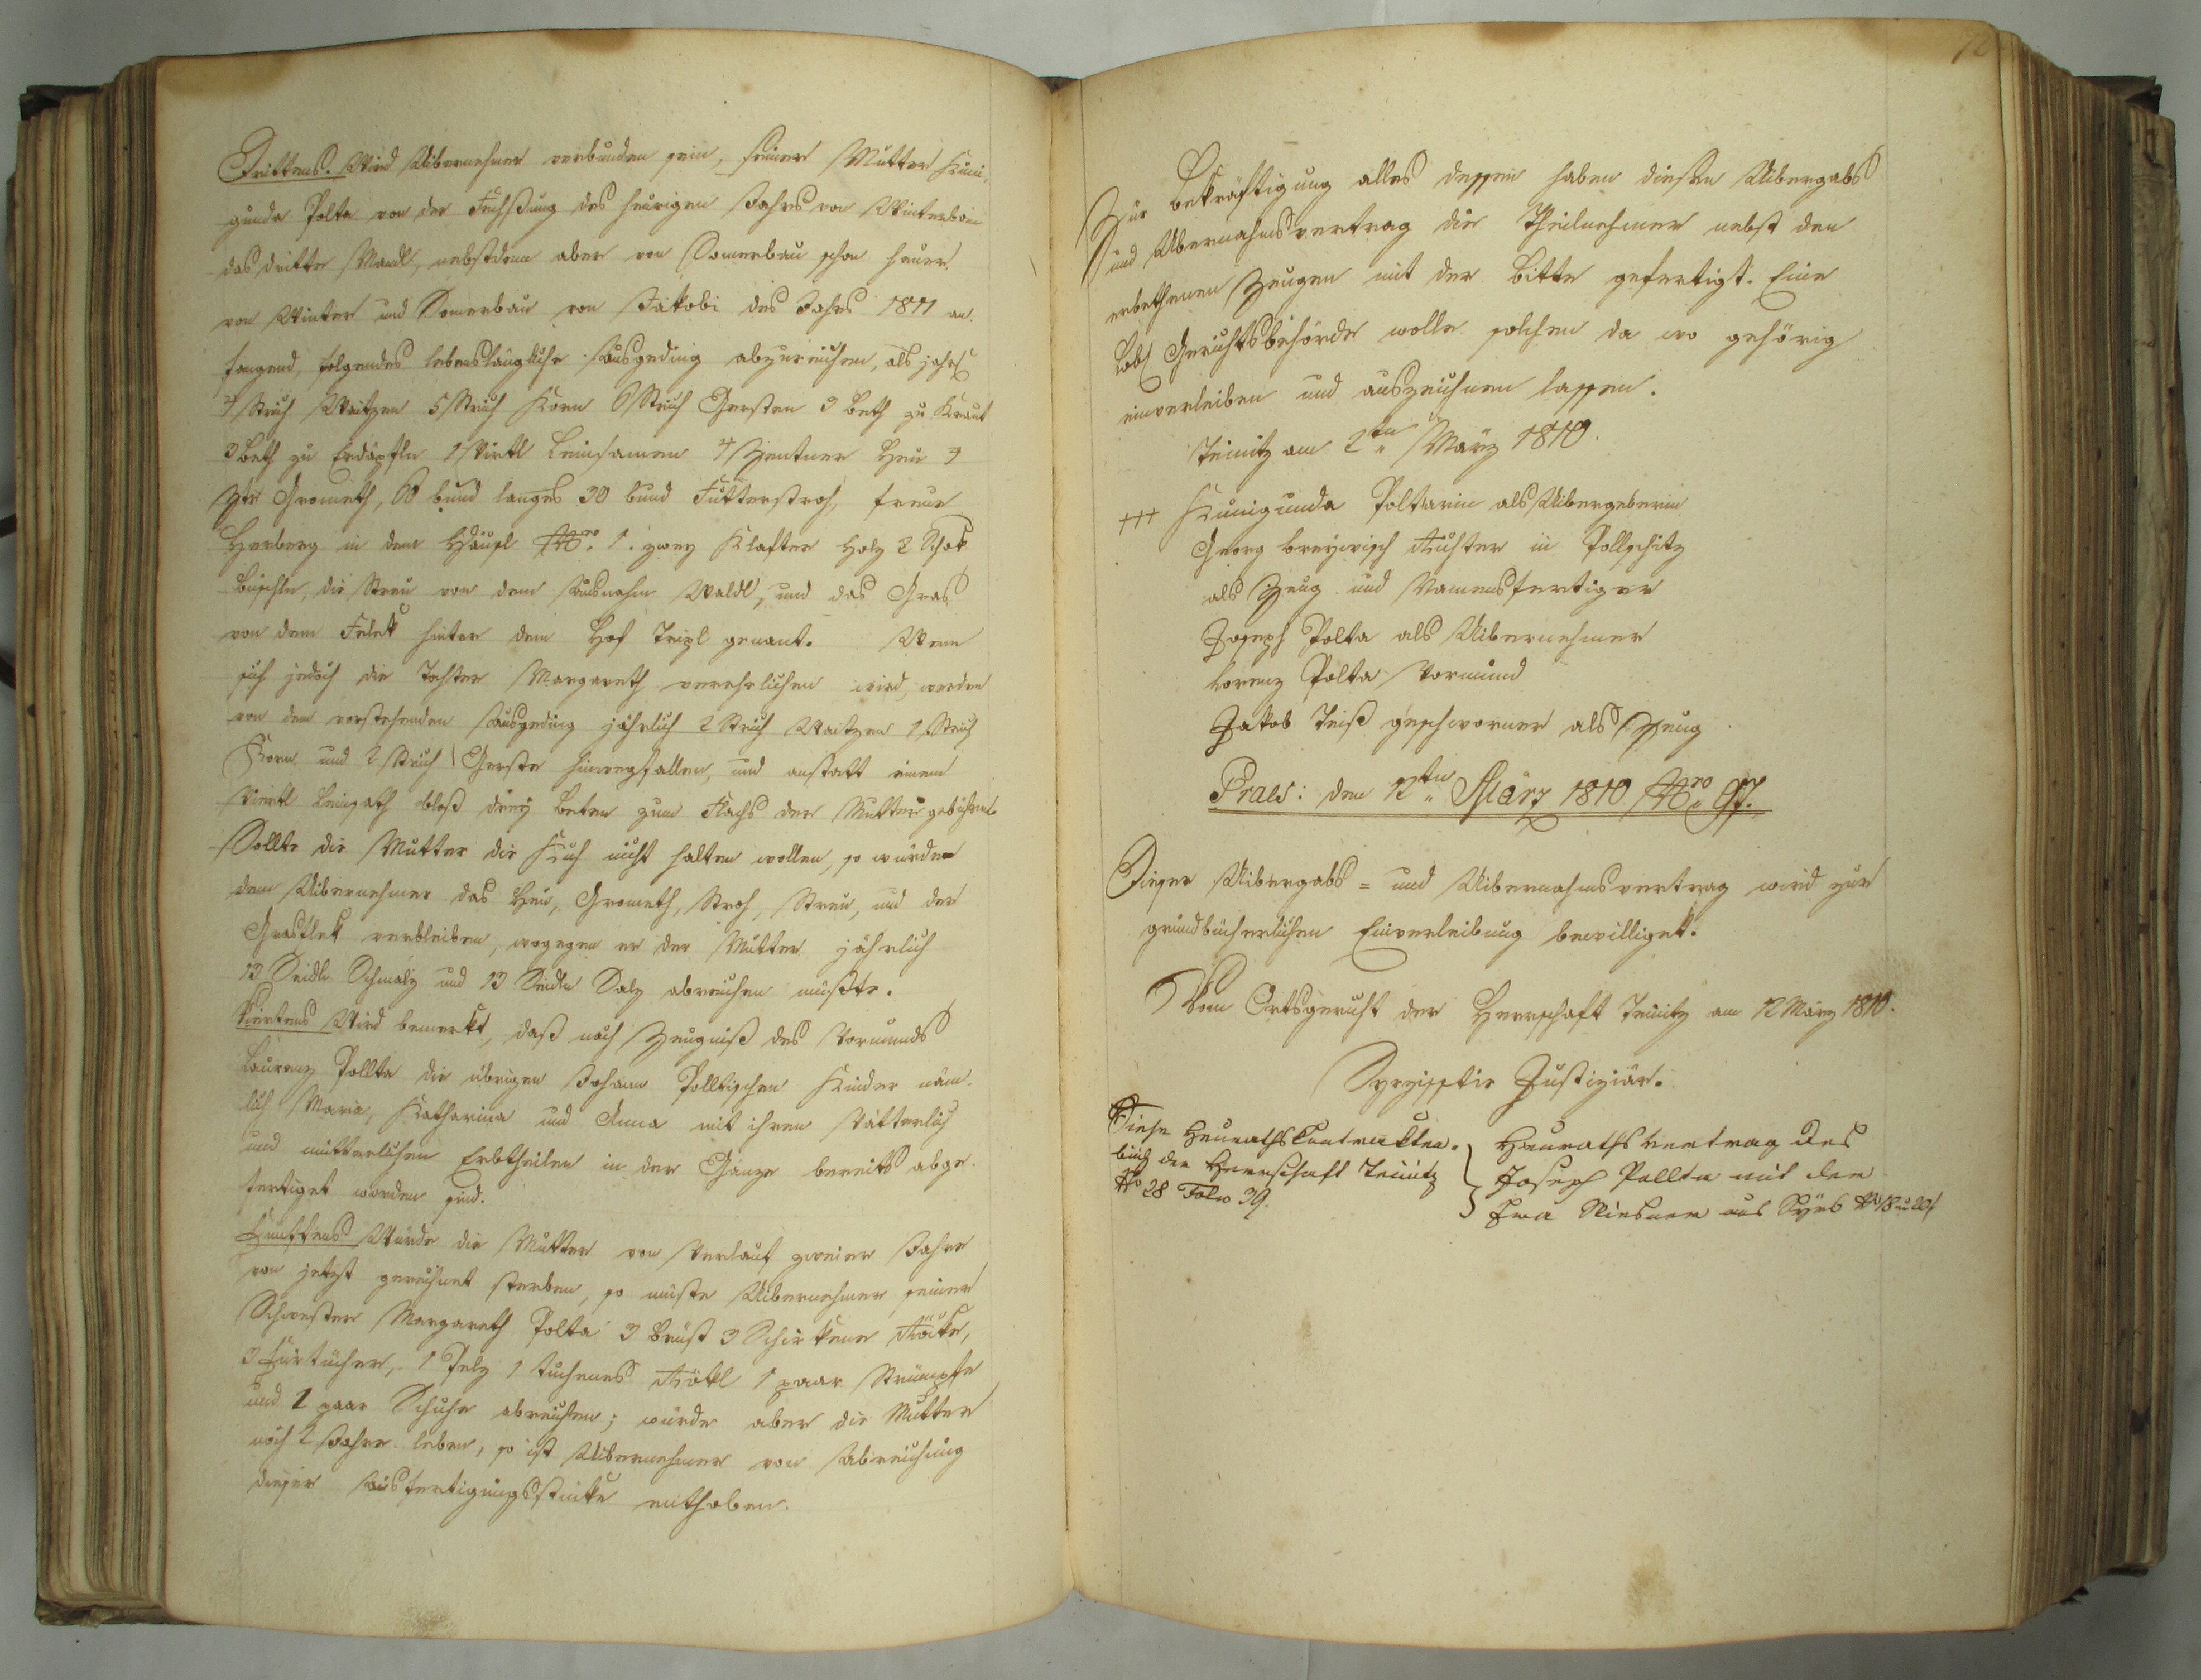 Drittens. Wird Uibernehmer verbunden sein, seiner Mutter Kuni,
gunda Polta von der Fechsung des heurigen Jahrs von Winterbau
das dritte Mandl, nebstdem aber von Somerbau schon heuer
von Winter und Somerbau von Jakobi des Jahrs 1811 an.
fangend, folgendes lebenslängliche Ausgeding abzureichen, als jährl
4 Strich Waitzen 5 Strich Korn 6 Strich Gersten 3 Beth zu Kraut
3 Beth zu Erdäpfln 1 Virtl Leinsamen 4 Zentner Heu 3
Ztr Grometh, 60 bund langes 30 bund Futterstroh, freue
Herberg in dem Häusl Nro. 1. zwey Klafter Holz 2 Schok
büschln, die Streu von dem Ausnahm Waldl, und das Gras
von dem Felek hinter dem Hof Teipl genant. Wenn
sich jedoch die Tochter Margareth verehelichen wird, werden
von dem vorstehenden Ausgeding jährlich 2 Strich Waitzen 1 Strich
Korn und 2 Strich Gerste hinwegfallen, und anstatt einem
Viertl Leinsath bloß drey Beten zum Flachs der Mutter gebühren.
Sollte die Mutter die Kuh nicht halten wollen, so würden
dem Uibernehmer das Heu, Grometh, Stroh, Streu, und der
Grasflek verbleiben, wogegen er der Mutter jährlich
13 Seidln Schmalz und 13 Seidln Salz abreichen müßte.
Viertens Wird bemerkt, daß nach Zeugniß des Vormunds
Laurenz Pollta die übrigen Johann Polltischen Kinder näm-
lich Maria, Katharina und Anna mit ihren Vätterlich
und mütterlichen Erbtheilen in der Gänze bereits abge-
fertiget worden sind.
Fünftens Würde die Mutter von Verlauf zweier Jahre
von jetzt gerechnet sterben, so müste Uibernehmer seiner
Schwester Margareth Polta 3 Brüst 3 Schirkene Röcke,
3 Fürtücher, 1 Pelz 1 tuchenes Rökl 1 paar Strümpfe
und 1 paar Schuhe abreichen; würde aber die Mutter
noch 2 Jahre leben, so ist Uibernehmer von Abreichung
dieser Ausfertigungsstücke enthoben.
72
Zur Bekräftigung alles dessen haben diesen Uibergabs
und Ubernahmsvertrag die Theilnehmer nebst den
erbethenen Zeugen mit der Bitte gefertigt. Eine
Löbl Gerichtsbehörde wolle solchen da wo gehörig
einverleiben und auszeichnen lassen.
Teinitz am 2ten März 1810.
+++ Kunigunda Poltarin als Uibergeberin
Georg Richter in Pollschitz
als Zeug und Namensfertiger
Joseph Polta als Uibernehmer
Lorenz Polta Vormund
Jakob Teiß geschworner als Zeug
Praes: den 12ten März 1810 Nro 97.
Dieser Uibergabs = und Uibernahmsvertrag wird zur
grundbücherlichen Einverleibung bewilliget.
Vom Ortsgericht der Herrschaft Teinitz am 12 März 1810.
Justiziär.
Siehe Heuraths Contrakten-
buch der Herrschaft Teinitz
No 28 Folio 39.
Heurathsvertrag des
Joseph Pollta mit der
Eva aus